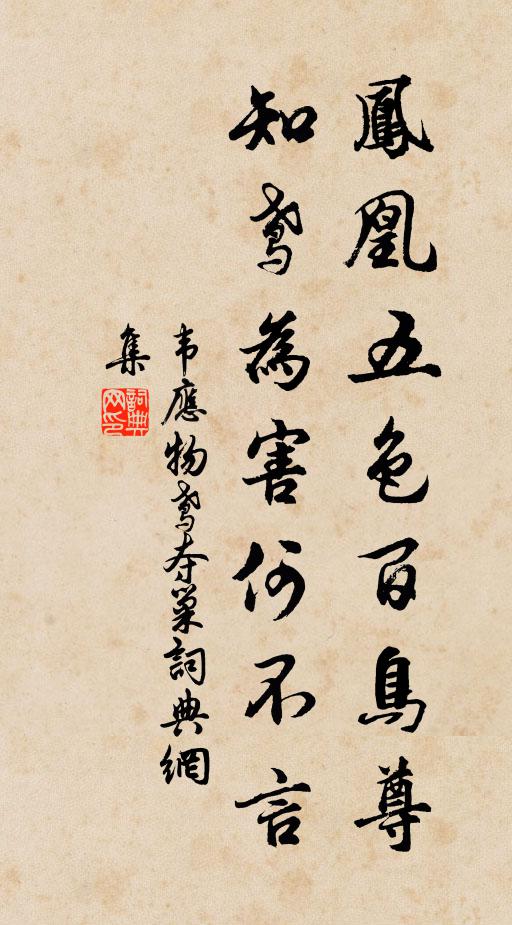 鳳凰五色百鳥尊
知鳶為害何不言
韦應物鳶夺巢詞典網
集
詞典
网印